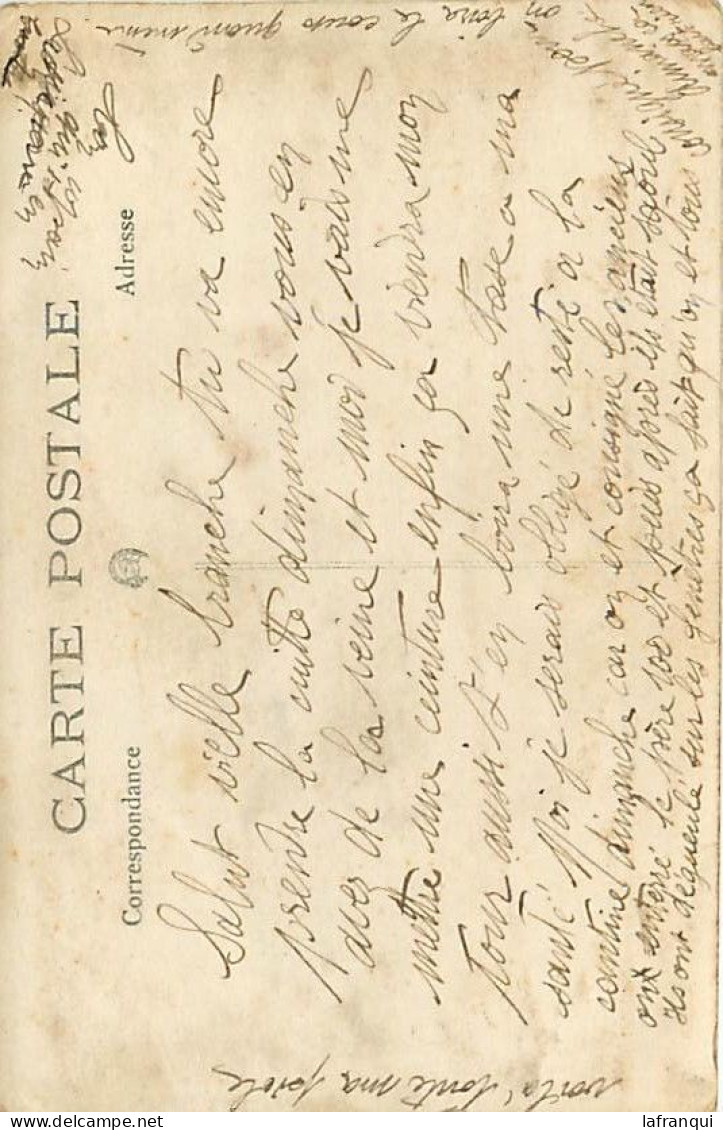 CARTE POSTALE
Correspondance
Adresse
Salut vielle branche tu va encore
prendre la cuitte dimanche vous en
avez de la veine et moi je vais me
mettre une ceinture enfin ça viendra mon
tour aussi t'en boira une tase a ma
santé moi je serais obligé de resté a la
cantine dimanche car on et consigné les anciens
ont enterré le père 100 et puis après ils était saoul
ils ont dégueulé sur les fenêtres ça fait qu'on et tous consigné pour
dimanche
on boira le coup quand meme
voila toute ma
lafranqui